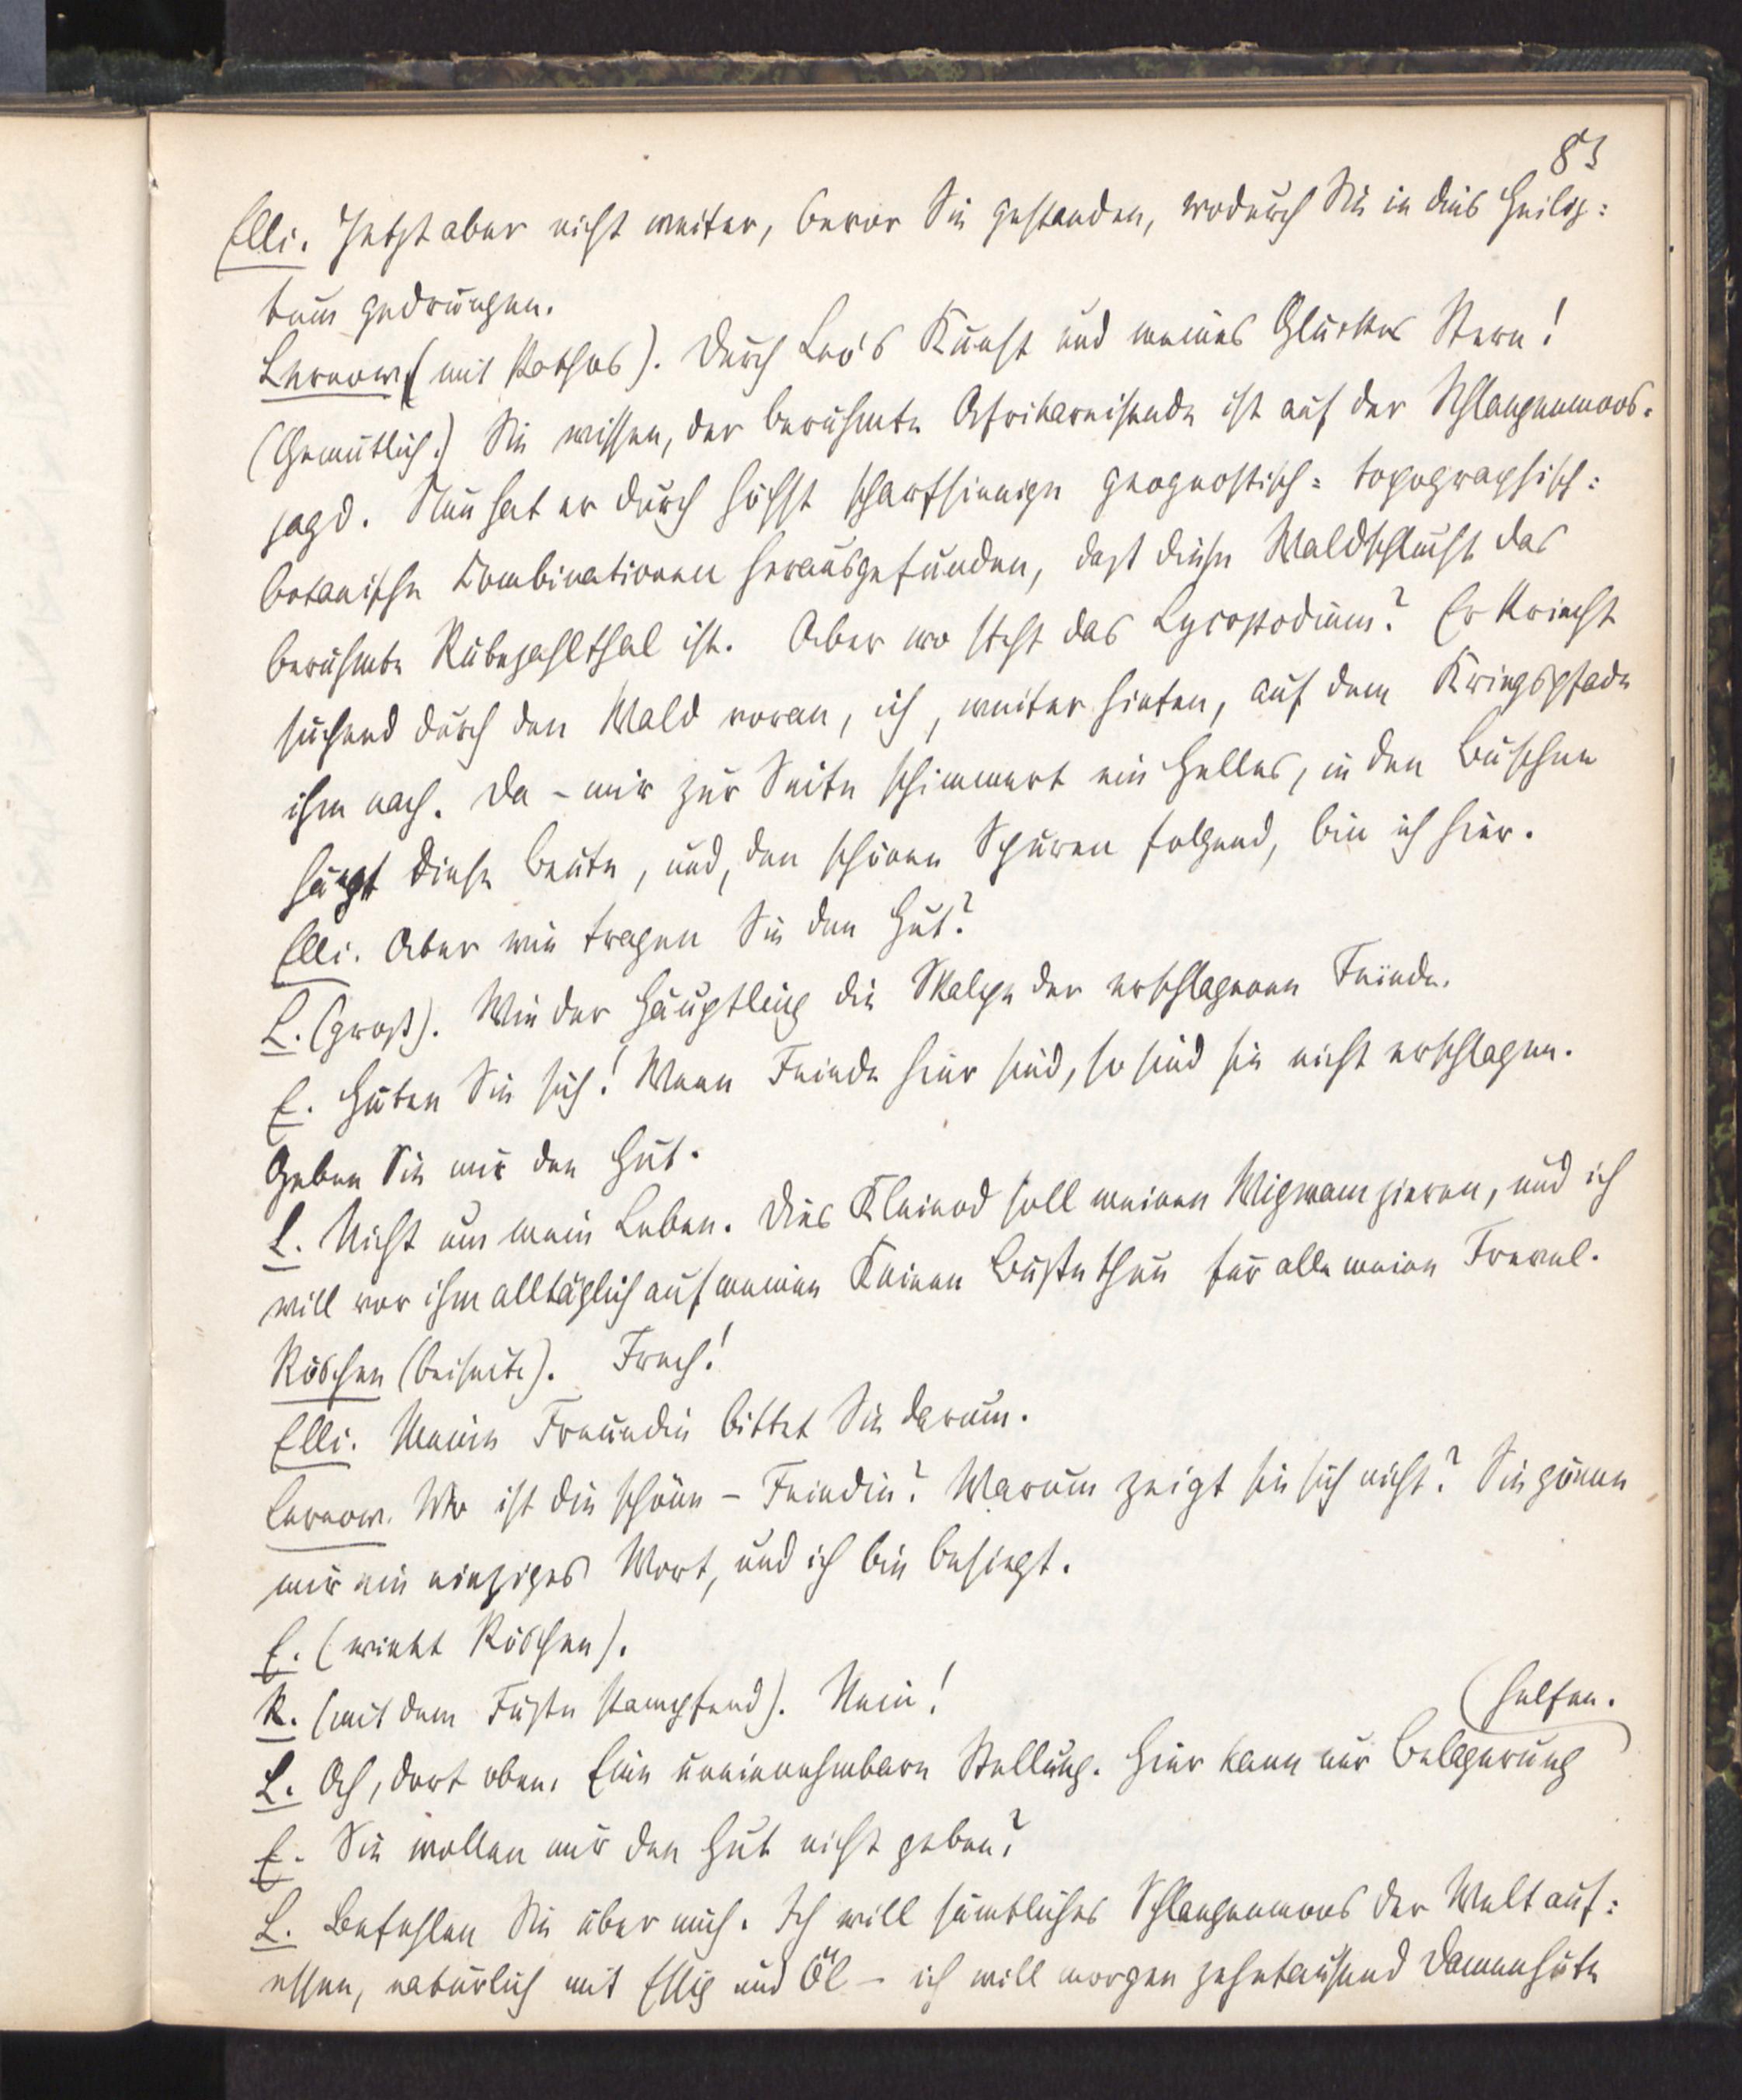 83
Elli. Jetzt aber nicht weiter, bevor Sie gestanden, wodurch Sie in dies Heilig=
tum gedrungen.
Lernow (mit Pathos). Durch Leo's Kunst und meines Glückes Stern!
(Gemütlich.) Sie wissen, der berühmte Afrikareisende ist auf der Schlangenmoos-
jagd. Nun hat er durch höchst scharfsinnige geognostisch= topographisch=
botanische Combinationen herausgefunden, daß diese Waldschlucht das
berühmte Rübezahlthal ist. Aber wo steht das Lycopodium? Er kriecht
suchend durch den Wald voran, ich, weiter hinten, auf dem Kriegspfade
ihm nach. Da – mir zur Seite schimmert ein Helles, in den Büschen
hängt diese Beute, und, den schönen Spuren folgend, bin ich hier.
Elli. Aber wie tragen Sie den Hut?
L. (groß). Wie der Häuptling die Skalpe der erschlagenen Feinde.
E. Hüten Sie sich! Wenn Feinde hier sind, so sind sie nicht erschlagen.
Geben Sie mir den Hut.
L. Nicht um mein Leben. Dies Kleinod soll meinen Wigwam zieren, und ich
will vor ihm alltäglich auf meinen Knieen Buße thun für alle meine Frevel.
Röschen (beiseite). Frech!
Elli. Meine Freundin bittet Sie darum.
Lernow. Wo ist die schöne – Feindin? Warum zeigt sie sich nicht? Sie gönne
mir ein einziges Wort, und ich bin besiegt.
E. (winkt Röschen).
R. (mit dem Fuße stampfend). Nein!
L. Ach, dort oben. Eine uneinnehmbare Stellung. Hier kann nur Belagerung
(helfen.
E. Sie wollen mir den Hut nicht geben?
L. Befehlen Sie über mich. Ich will sämtliches Schlangenmoos der Welt auf=
essen, natürlich mit Essig und Öl – ich will morgen zehntausend Damenhüte